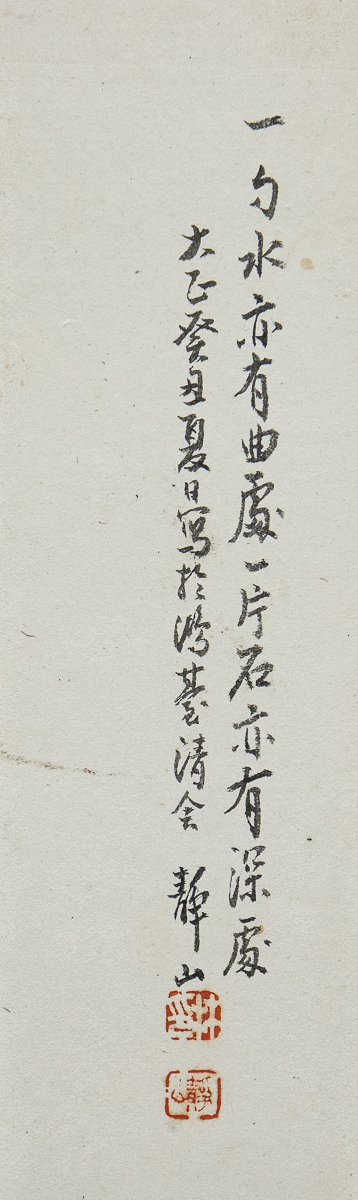 一勺水亦有曲處一片石亦有深處
大正癸丑夏日寫於鴻臺清舍 靜山